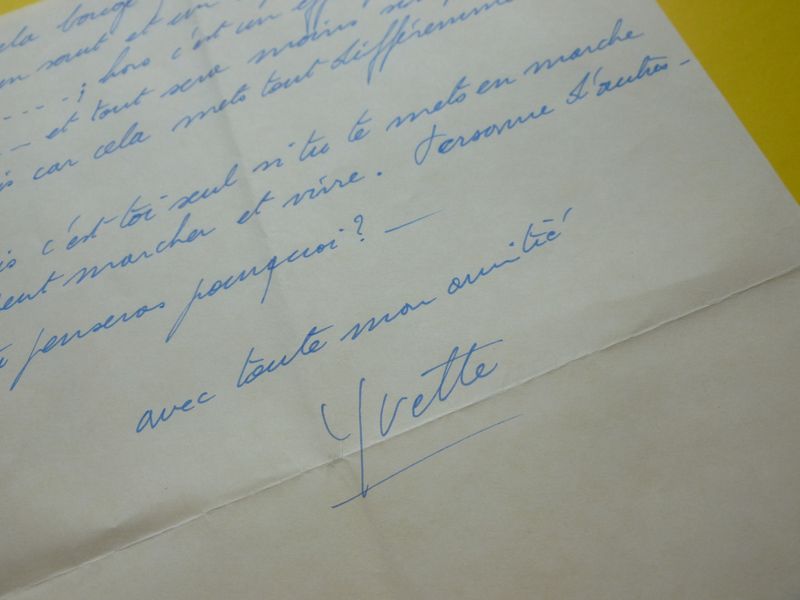 cela bouge
en sout et un
. . . . ; hors c'est un eff
— et tout sera moins
is car cela mets tout différemme
is c'est toi seul si tu te mets en marche
eut marcher et vivre. Personne d'autres -
penseras pourquoi? —
avec toute mon amitié
Yvette